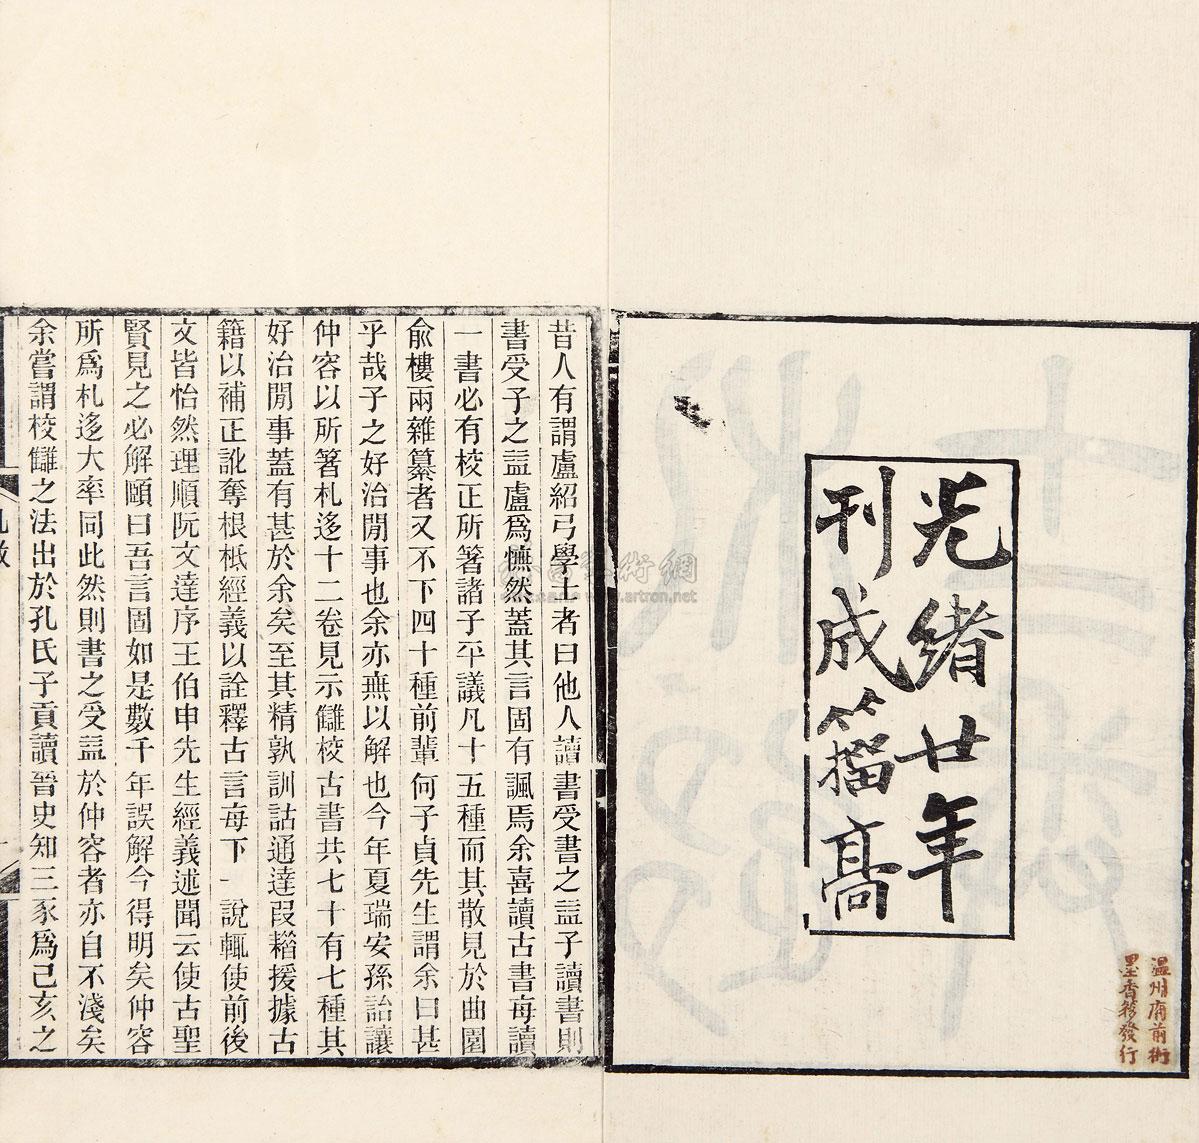 光緒廿年
刊成籒高
温州府前街
墨香簃發行
昔人有謂盧紹弓學士者曰他人讀書受書之益子讀書則
書受子之益盧爲憮然蓋其言固有諷焉余喜讀古書每讀
一書必有校正所箸諸子平議凡十五種而其散見於曲園
俞樓兩雜纂者又不下四十種前輩何子貞先生謂余曰甚
乎哉子之好治閒事也余亦無以解也今年夏瑞安孫詒讓
仲容以所箸札迻十二卷見示讎校古書共七十有七種其
好治閒事蓋有甚於余矣至其精孰訓詁通達叚耤援據古
籍以補正訛奪根柢經義以詮釋古言每下一說輒使前後
文皆怡然理順阮文達序王伯申先生經義述聞云使古聖
賢見之必解頤曰吾言固如是數千年誤解今得明矣仲容
所爲札迻大率同此然則書之受益於仲容者亦自不淺矣
余嘗謂校讎之法出於孔氏子貢讀晉史知三豕爲己亥之